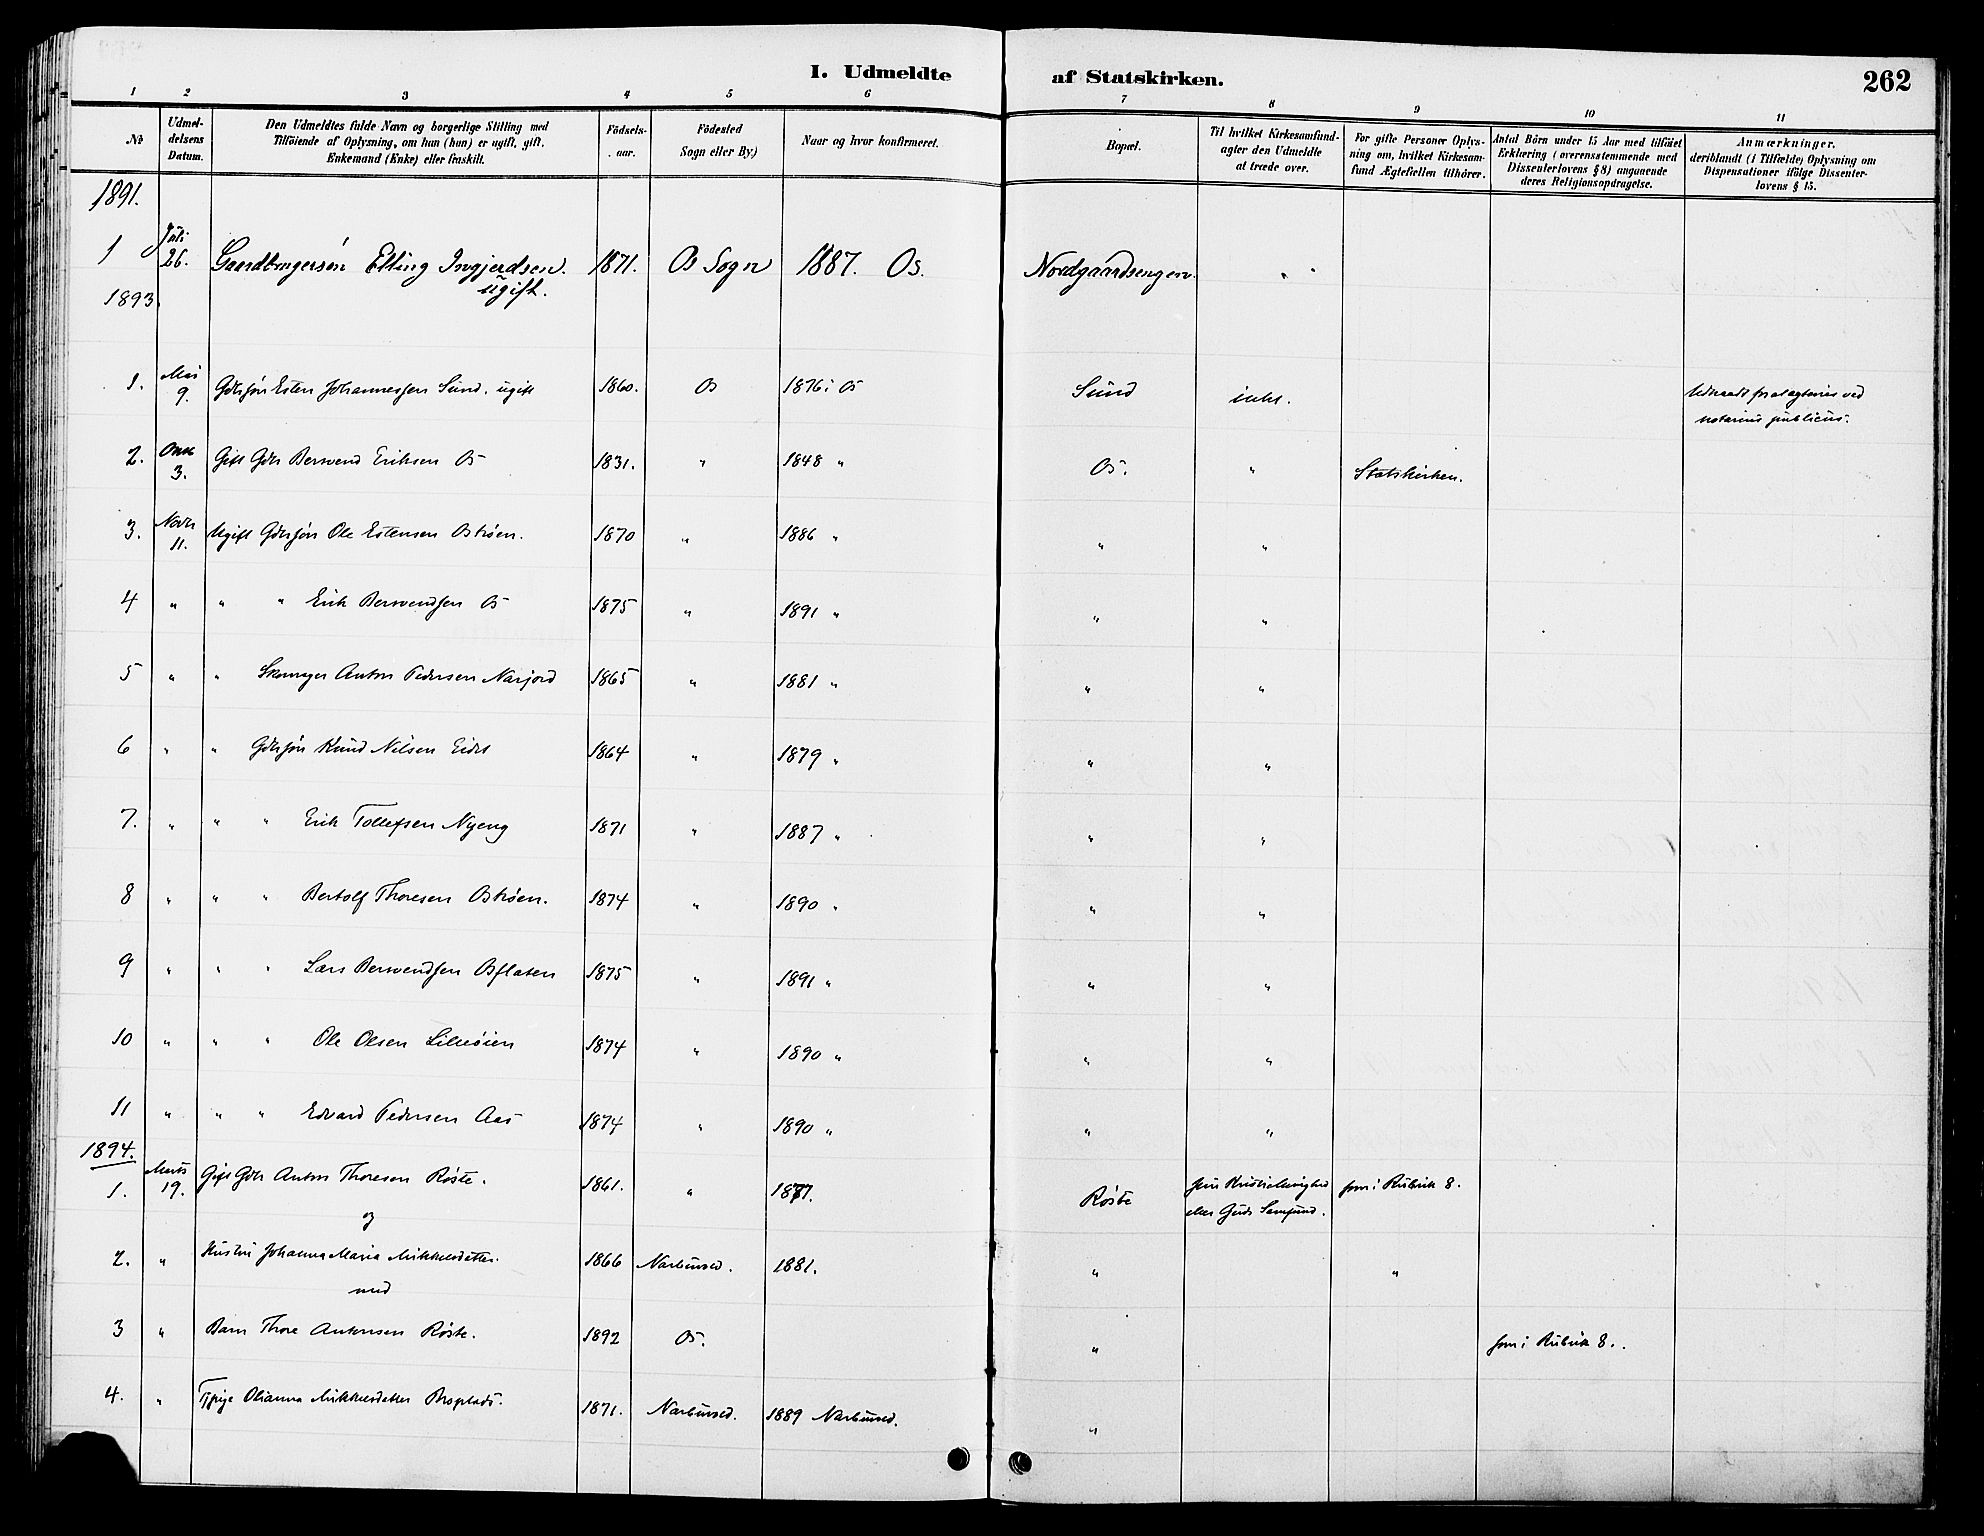 I. Udmeldte af Statskirken.
262
1 2 3 4 5 6 7 8 9 10 11
№
Udmel-
delsens
Datum.
Den Udmeldtes fulde Navn og borgerlige Stilling med
Tilföiende af Oplysning, om han (hun) er ugift, gift,
Enkemand (Enke) eller fraskilt.
Födsels-
aar.
Födested
Sogn eller By.)
Naar og hvor konfirmeret.
Bopæl.
Til hvilket Kirkesamfund
agter den Udmeldte
at træde over.
For gifte Personer Oplys-
ning om, hvilket Kirkesam-
fund Ægtefællen tilhörer.
Antal Börn under 15 Aar med tilföiet
Erklæring (overensstemmende med
Dissenterlovens § 8) angaaende
deres Religionsopdragelse.
Anmærkninger.
deriblandt (i Tilfælde) Oplysning om
Dispensationer ifölge Dissenter-
lovens § 15.
1891.
1 Juli 26. Gaardbrugersön Elling Ingjerdsen. 1871. Os Sogn 1887. Os. Nordgaardsengen. " "
ugift.
1893.
1. Mai 9. Gdbrsøn Esten Johannessen Sund. ugift 1860. Os 1876 i Os Sund intet. ved
notarius publicus.
2. 3. Gift Gdbr Berwend Eriksen Os 1831. " 1848 " Os. " Statskirken.
3. Novbr 11. Ugift Gdbrsøn Ole Estensen Oskøen. 1870 " 1886 " " "
4 " " " Erik Berwendsen Os 1875 " 1891 " " "
5 " " Skomager Anton Pedersen Narjord 1865 " 1881 " " "
6 " " Gdbrsøn Knud Nilsen Eidet 1864 " 1879 " " "
7. " " " Erik Tollefsen Nyeng 1871 " 1887 " " "
8 " " " Bertolf Thoresen Oskøen. 1874 " 1890 " " "
9 " " " Lars Berwendsen Osflaten 1875 " 1891 " " "
10 " " " Ole Olsen Lilleøien 1874 " 1890 " " "
11 " " " Edvard Pedersen Aas 1874 " 1890 " " "
1894.
1. Marts 19. Gift Gdbr Anton Thoresen Røste. 1861. " 1877. Røste eller Guds Samfund. som i Rubrik 8.
og
2. " Hustru Johanna Maria Mikkelsdatter. 1866 Narbuvold. 1881. " "
med
3 " Barn Thore Antonsen Røste. 1892 Os. " som i Rubrik 8.
4. " Tjpige Olianna Mikkelsdatter 1871. Narbuvold. 1889 Narbuvold. "